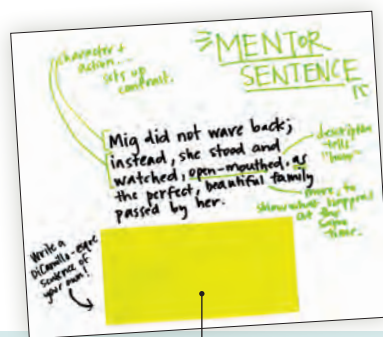 MENTOR
SENTENCE
character +
action...
sets up
contrast.
Mig did not wave back;
instead, she stood and
watched, open-mouthed, as
the perfect, beautiful family
passed by her.
description
tells
"how"
more, to
show what happened
at the
same
time.
Write a
DiCamillo-esque
sentence of
your own!